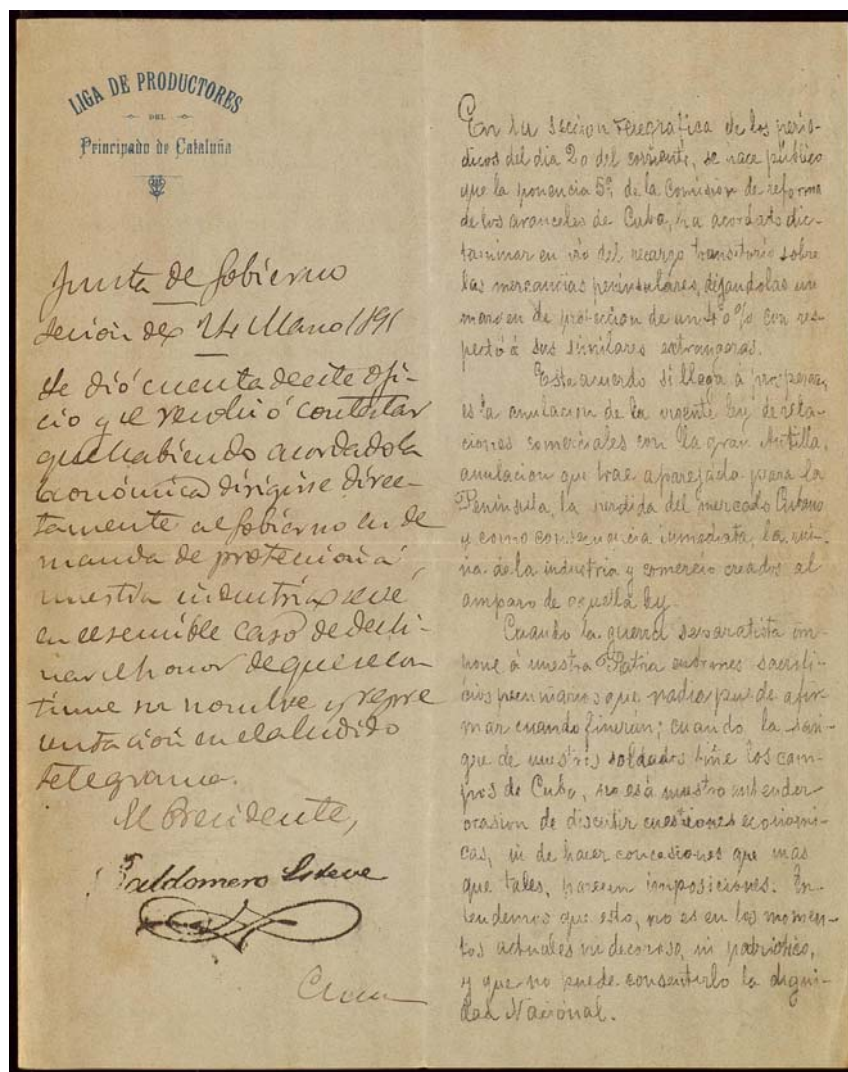 LIGA DE PRODUCTORES
DEL
Principado de Cataluña
Junta de Gobierno
Sesión del 24 Marzo
Se dió cuenta de este Ofi-
cio y se resolvió contestar
que habiendo acordado la
Económica dirigirse direc-
tamente al Gobierno en de
manda de protección á
nuestra industria se vé
en el sensible caso de decli-
nar el honor de que se con
tinue su nombre y repre
sentación en el aludido
telegrama.
El Presidente,
Baldomero Esteve
En la sección telegrafica de los perió-
dicos del dia 20 del corriente, se hace público
que la ponencia 5ª de la Comision de reforma
de los aranceles de Cuba, ha acordado dic-
taminar en pró del recargo transitorio sobre
las mercancias peninsulares, dejandolas un
margen de protección de un 40 % con res-
pecto á sus similares extrangeras.
Este acuerdo si llega á prosperar,
es la anulacion de la vigente ley de rela-
ciones comerciales con la gran Antilla,
anulacion que trae aparejada para la
Peninsula, la perdida del mercado Cubano
y como consecuencia inmediata, la rui-
na de la industria y comercio creados al
amparo de aquella ley.
Cuando la guerra separatista im-
pone á nuestra Patria enormes sacrifi-
cios pecuniarios que nadie puede afir-
mar cuando fineran; cuando la san-
gre de nuestros soldados tiñe los cam-
pos de Cuba, no es á nuestro entender
ocasion de discutir cuestiones economi-
cas, ni de hacer concesiones que mas
que tales, parecen imposiciones. En-
tendemos que esto, no es en los momen-
tos actuales ni decoroso, ni patriotico,
y que no puede consentirlo la digni-
dad Nacional.